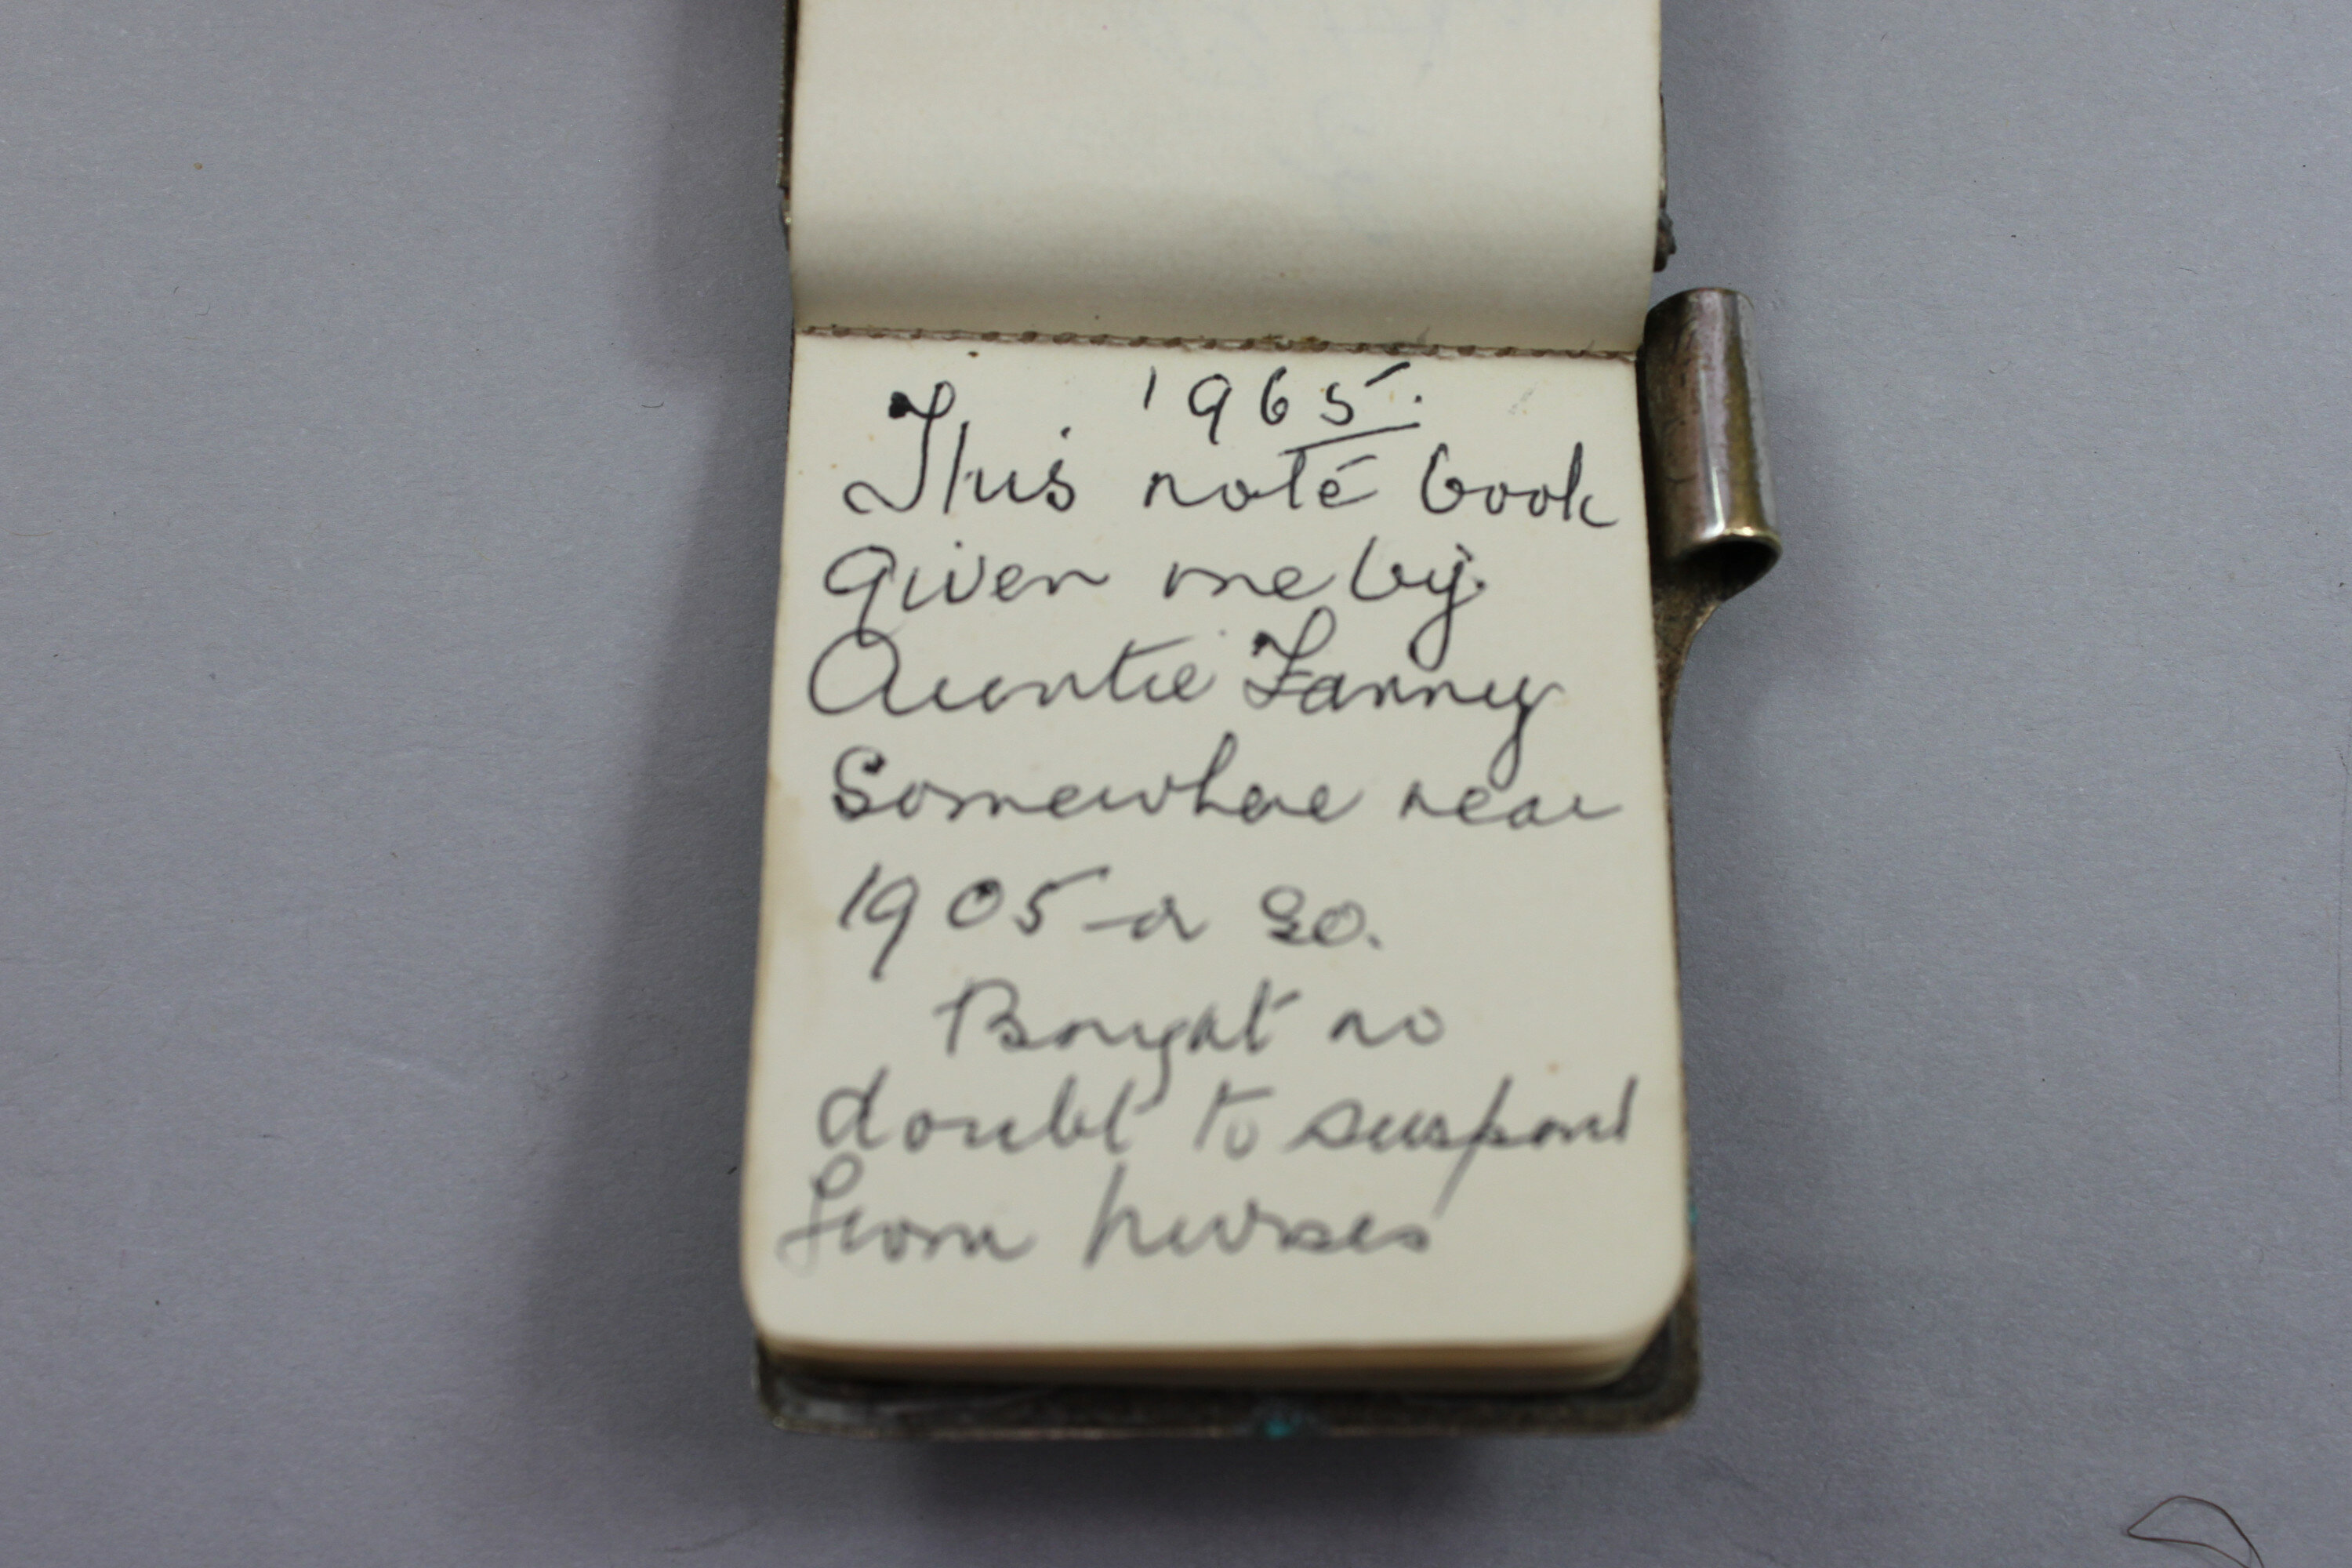 1965.
This note book
given me by
Auntie Fanny
Somewhere near
1905 or so.
Bought no
doubt to suspend
from nurses'